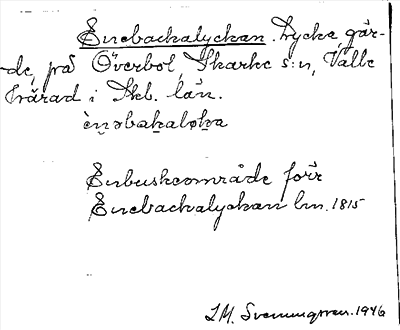 Enebackalyckan. Lycka gär-
de, på Överbol, Skarke s:n, Valle
härad i Skb. län.
ènəbakaløka
Enbuskeområde förr
Enebackalyckan lm. 1815
I.M. Svenungsson. 1946